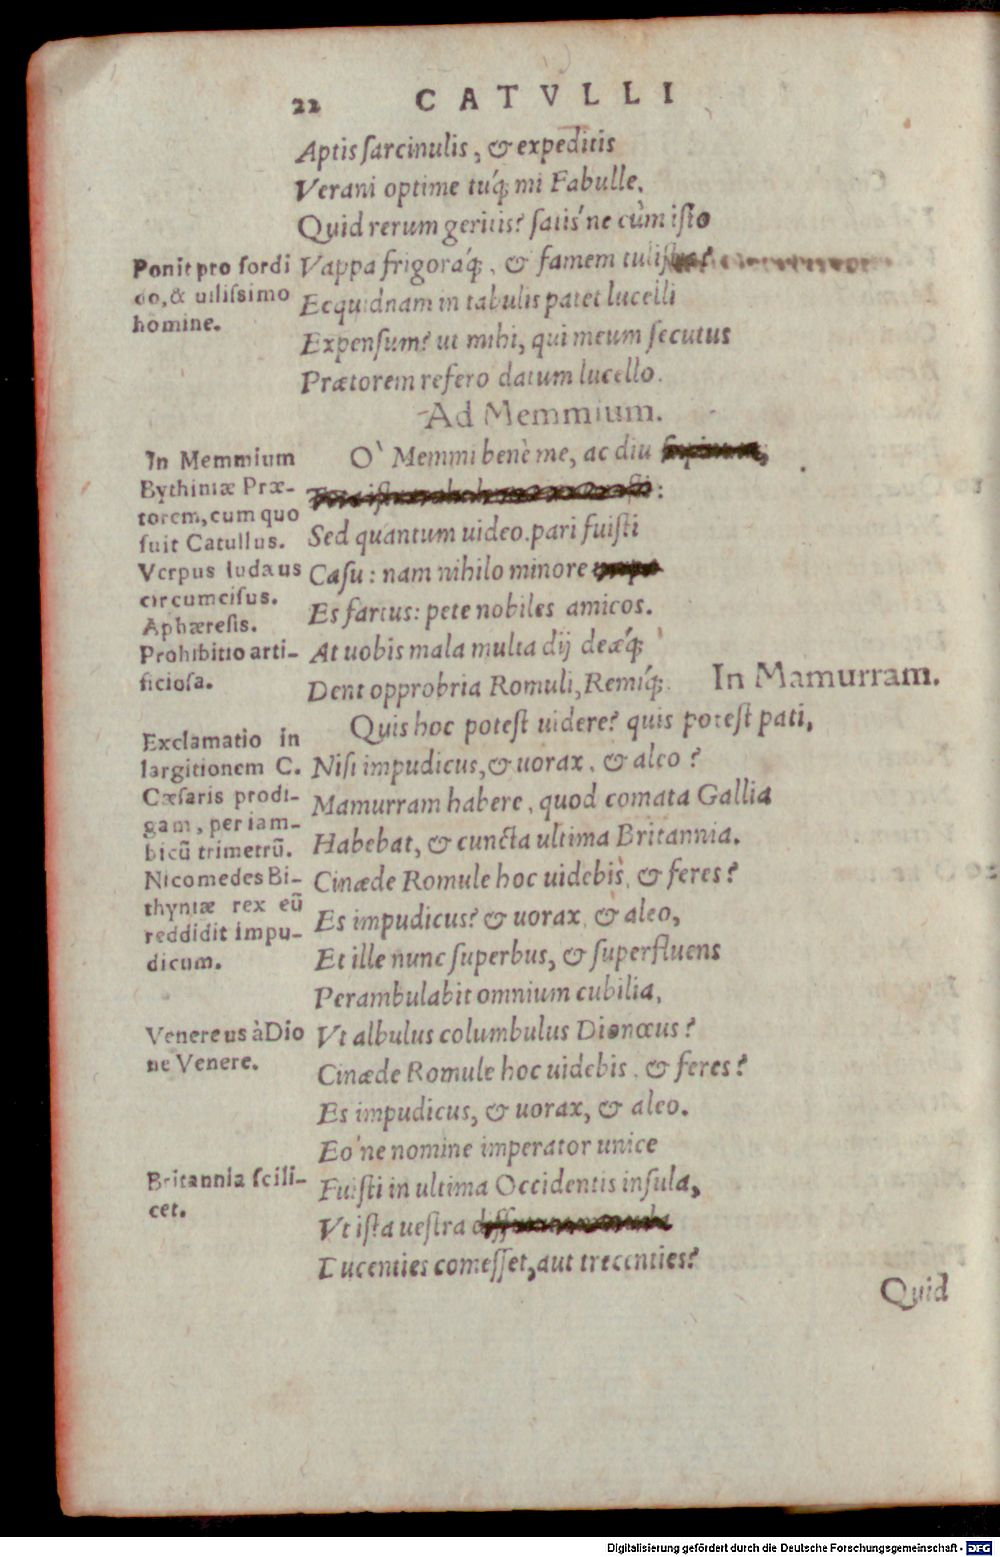 22 CATVLLI
Aptis ſarcinulis, & expeditis
Verani optime tuq́; mi Fabulle,
Quid rerum geritis? ſatis'ne cùm iſto
Vappa frigoráq́;, & famem tuliſtis?
Ecquidnam in tabulis patet lucelli
Expenſum? ut mihi, qui meum ſecutus
Prætorem refero datum lucello.
Ponit pro ſordi
do, & uiliſsimo
homine.
Ad Memmium.
O` Memmi benè me, ac diu
Sed quantum uideo. pari fuiſti
Caſu: nam nihilo minore
Es fartus: pete nobiles amicos.
At uobis mala multa dij deæq́;
Dent opprobria Romuli, Remiq́;.
In Memmium
Bythiniæ Præ-
torem, cum quo
fuit Catullus.
Verpus Iudæus
circumciſus.
Aphæreſis.
Prohibitio arti-
ficioſa.
In Mamurram.
Quis hoc poteſt uidere? quis poteſt pati,
Niſi impudicus, & uorax, & aleo?
Mamurram habere, quod comata Gallia
Habebat, & cuncta ultima Britannia.
Cinæde Romule hoc uidebis, & feres?
Es impudicus? & uorax, & aleo,
Et ille nunc ſuperbus, & ſuperfluens
Perambulabit omnium cubilia,
Vt albulus columbulus Dionæus?
Cinæde Romule hoc uidebis, & feres?
Es impudicus, & uorax, & aleo.
Eo'ne nomine imperator unice
Fuiſti in ultima Occidentis inſula,
Vt iſta ueſtra
Ducenties comeſſet, aut trecenties?
Exclamatio in
largitionem C.
Cæſaris prodi-
gam, per iam-
bicũ trimetrũ.
Nicomedes Bi-
thyniæ rex eũ
reddidit impu-
dicum.
Venereus à Dio
ne Venere.
Britannia ſcili-
cet.
Quid
Digitalisierung gefördert durch die Deutsche Forschungsgemeinschaft - DFG